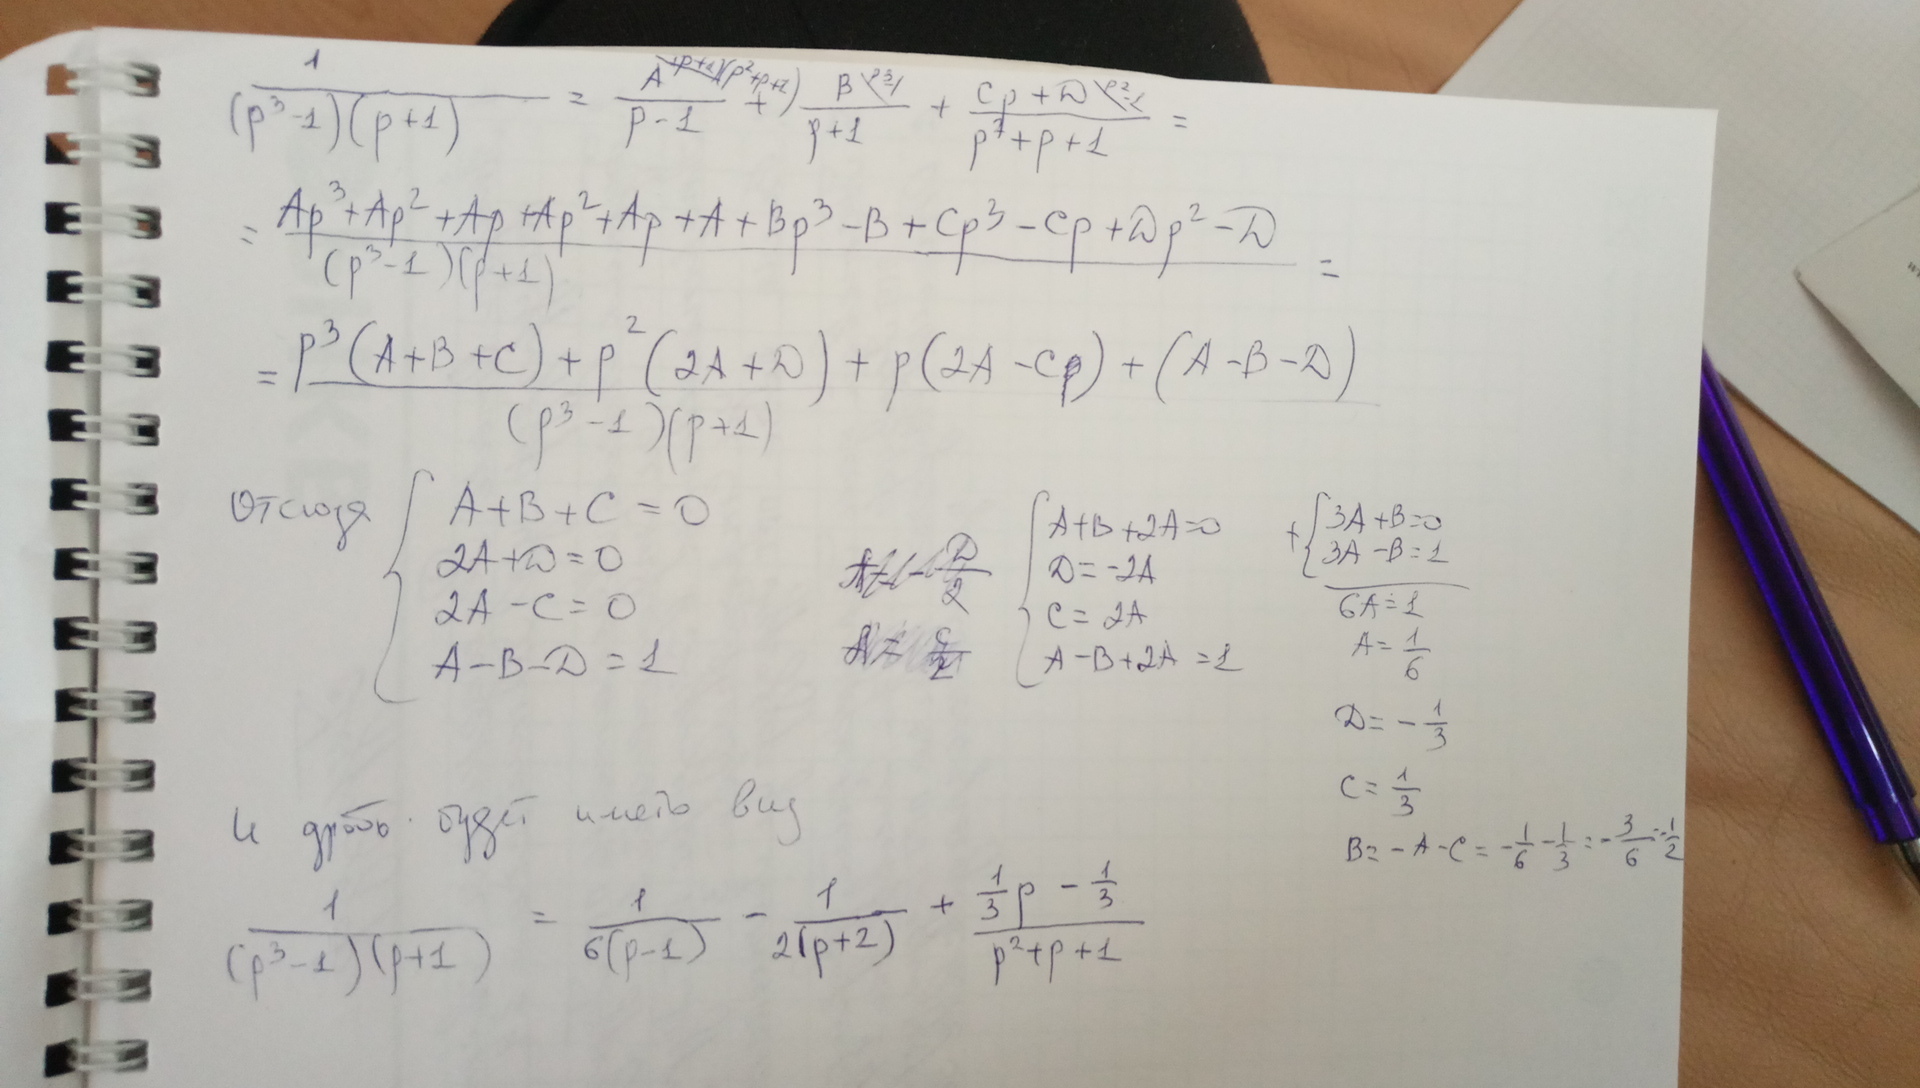 1/((p³-1)(p+1)) = A/(p-1) + B/(p+1) + (Cp+D)/(p²+p+1) =
= (Ap³+Ap²+Ap+Ap²+Ap+A+Bp³-B+Cp³-Cp+Dp²-D)/((p³-1)(p+1)) =
= (p³(A+B+C)+p²(2A+D)+p(2A-C)+(A-B-D))/((p³-1)(p+1))
Отсюда
A+B+C=0
2A+D=0
2A-C=0
A-B-D=1
A+B+2A=0
D=-2A
C=2A
A-B+2A=1
+ 3A+B=0
3A-B=1
6A=1
A=1/6
D=-1/3
C=1/3
B=-A-C=-1/6-1/3=-3/6=-1/2
И дробь будет иметь вид
1/((p³-1)(p+1)) = 1/(6(p-1)) - 1/(2(p+2)) + (1/3p - 1/3)/(p²+p+1)